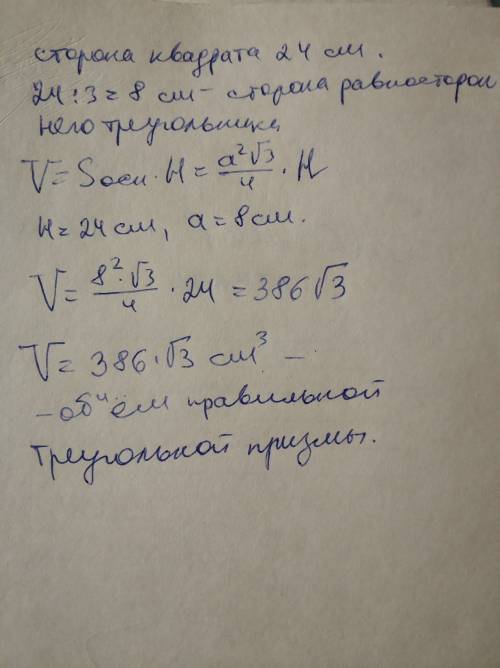 сторона квадрата 24 см.
24:3=8 см - сторона равносторон
него треугольника
V = Sосн · H = a²√3/4 · H
H=24 см, a=8 см.
V = 8²·√3/4 · 24 = 386√3
V = 386·√3 см³ -
- объём правильной
треугольной призмы.